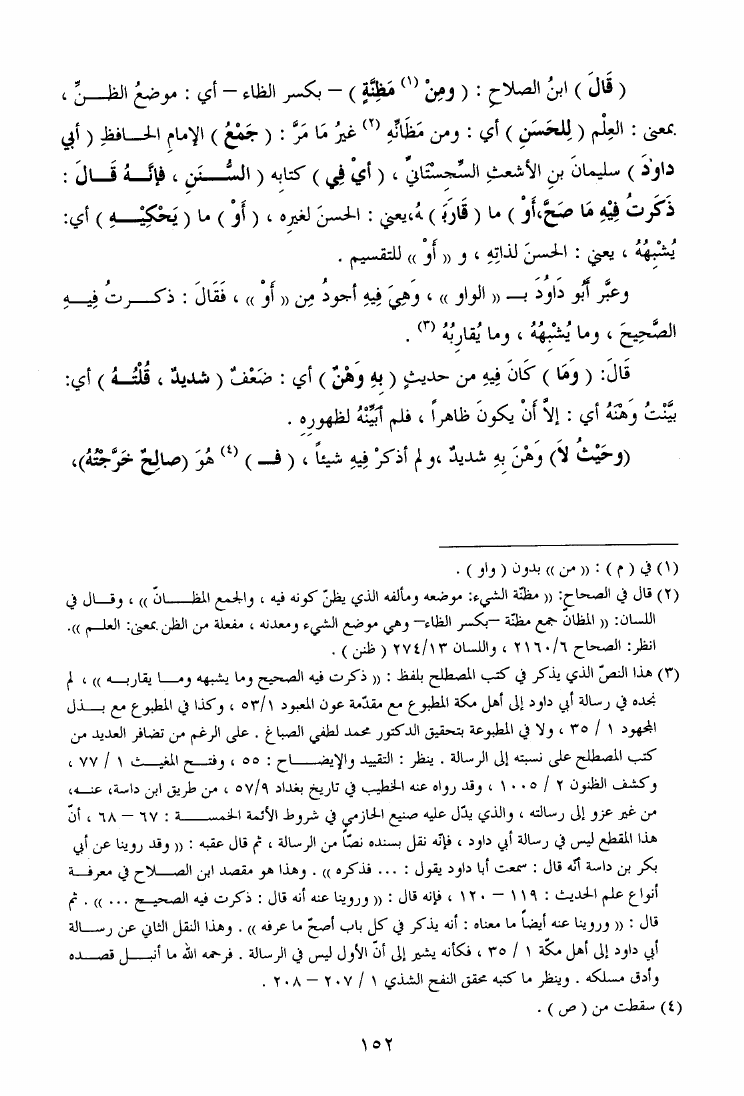 ( قَالَ ) ابنُ الصلاحِ : ( ومِنْ (١) مَظِنَّةٍ ) – بكسر الظاء – أي : موضعُ الظـــنِّ ،
بمعنى : العِلْم ( لِلحَسَنِ ) أي : ومن مَظَانِّهِ (٢) غيرُ مَا مَرَّ : ( جَمْعُ ) الإمامِ الحـافظِ ( أبي
داوُدَ ) سليمانَ بنِ الأشعثِ السِّجستَانيِّ ، ( أيْ فِي ) كتابه ( السُّـــنَنِ ، فإنَّـهُ قَـالَ :
ذَكَرتُ فِيْهِ مَا صَحَّ،أوْ ) ما ( قَارَبَ ) ـهُ،يعني : الحسنَ لغيرِه ، ( أوْ ) ما ( يَحْكِيْـــهِ ) أي:
يُشْبِهُهُ ، يعني : الحسنَ لذاتِهِ ، و (( أوْ )) للتقسيم .
وعبَّر أَبُو داوُدَ بــ (( الواو )) ، وَهِيَ فِيهِ أجودُ مِن (( أوْ )) ، فَقَالَ : ذكــرتُ فيـــهِ
الصَّحيحَ ، وما يُشْبِهُهُ ، وما يُقاربُهُ (٣) .
قَالَ: ( وَمَا ) كَانَ فِيهِ من حديثٍ ( بِهِ وَهْنٌ ) أي : ضَعْفٌ ( شديدٌ ، قُلْتُــهُ ) أي:
بيَّنْتُ وَهْنَهُ أي : إلاَّ أنْ يكونَ ظاهراً ، فلم أبَيِّنْهُ لظهورِهِ .
(وحَيْثُ لاَ) وَهْنَ بِهِ شديدٌ ،و لم أذكرْ فِيهِ شيئاً ، ( فــ ) (٤) هُوَ (صالِحٌ خَرَّجْتُهُ)،
(١) في ( م ) : (( من )) بدون ( واو ) .
(٢) قال في الصحاح: (( مظنّة الشيء: موضعه ومألفه الذي يظنّ كونه فيه ، والجمع المظـــانّ )) ، وقـال في
اللسان: (( المظانّ جمع مظنّة –بكسر الظاء– وهي موضع الشيء ومعدنه ، مفعلة من الظن بمعنى: العلـم )).
انظر: الصحاح ٢١٦٠/٦ ، واللسان ٢٧٤/١٣ ( ظنن ) .
(٣) هذا النصّ الذي يذكر في كتب المصطلح بلفظ : (( ذكرت فيه الصحيح وما يشبهه ومــا يقاربــه )) ، لم
نجده في رسالة أبي داود إلى أهل مكة المطبوع مع مقدّمة عون المعبود ٥٣/١ ، وكذا في المطبوع مع بــذل
المجهود ١ / ٣٥ ، ولا في المطبوعة بتحقيق الدكتور محمد لطفي الصباغ . على الرغم من تضافر العديد من
كتب المصطلح على نسبته إلى الرسالة . ينظر : التقييد والإيضــاح : ٥٥ ، وفتــح المغيــث ١ / ٧٧ ،
وكشف الظنون ٢ / ١٠٠٥ ، وقد رواه عنه الخطيب في تاريخ بغداد ٥٧/٩ ، من طريق ابن داسة، عنـه،
من غير عزو إلى رسالته ، والذي يدّل عليه صنيع الحازمي في شروط الأئمة الخمســـة : ٦٧ – ٦٨ ، أنّ
هذا المقطع ليس في رسالة أبي داود ، فإنّه نقل بسنده نصّاً من الرسالة ، ثم قال عقبه : (( وقد روينا عن أبي
بكر بن داسة أنّه قال : سمعت أبا داود يقول : ... فذكره )) . وهذا هو مقصد ابن الصـــلاح في معرفــة
أنواع علم الحديث : ١١٩ – ١٢٠ ، فإنه قال : (( وروينا عنه أنه قال : ذكرت فيه الصحيـح ... )) . ثم
قال : (( وروينا عنه أيضاً ما معناه : أنه يذكر في كل باب أصحّ ما عرفه )) . وهذا النقل الثاني عن رســالة
أبي داود إلى أهل مكّة ١ / ٣٥ ، فكأنه يشير إلى أنّ الأول ليس في الرسالة . فرحمه الله ما أنبــل قصــده
وأدق مسلكه . وينظر ما كتبه محقق النفح الشذي ١ / ٢٠٧ – ٢٠٨ .
(٤) سقطت من ( ص ) .
١٥٢